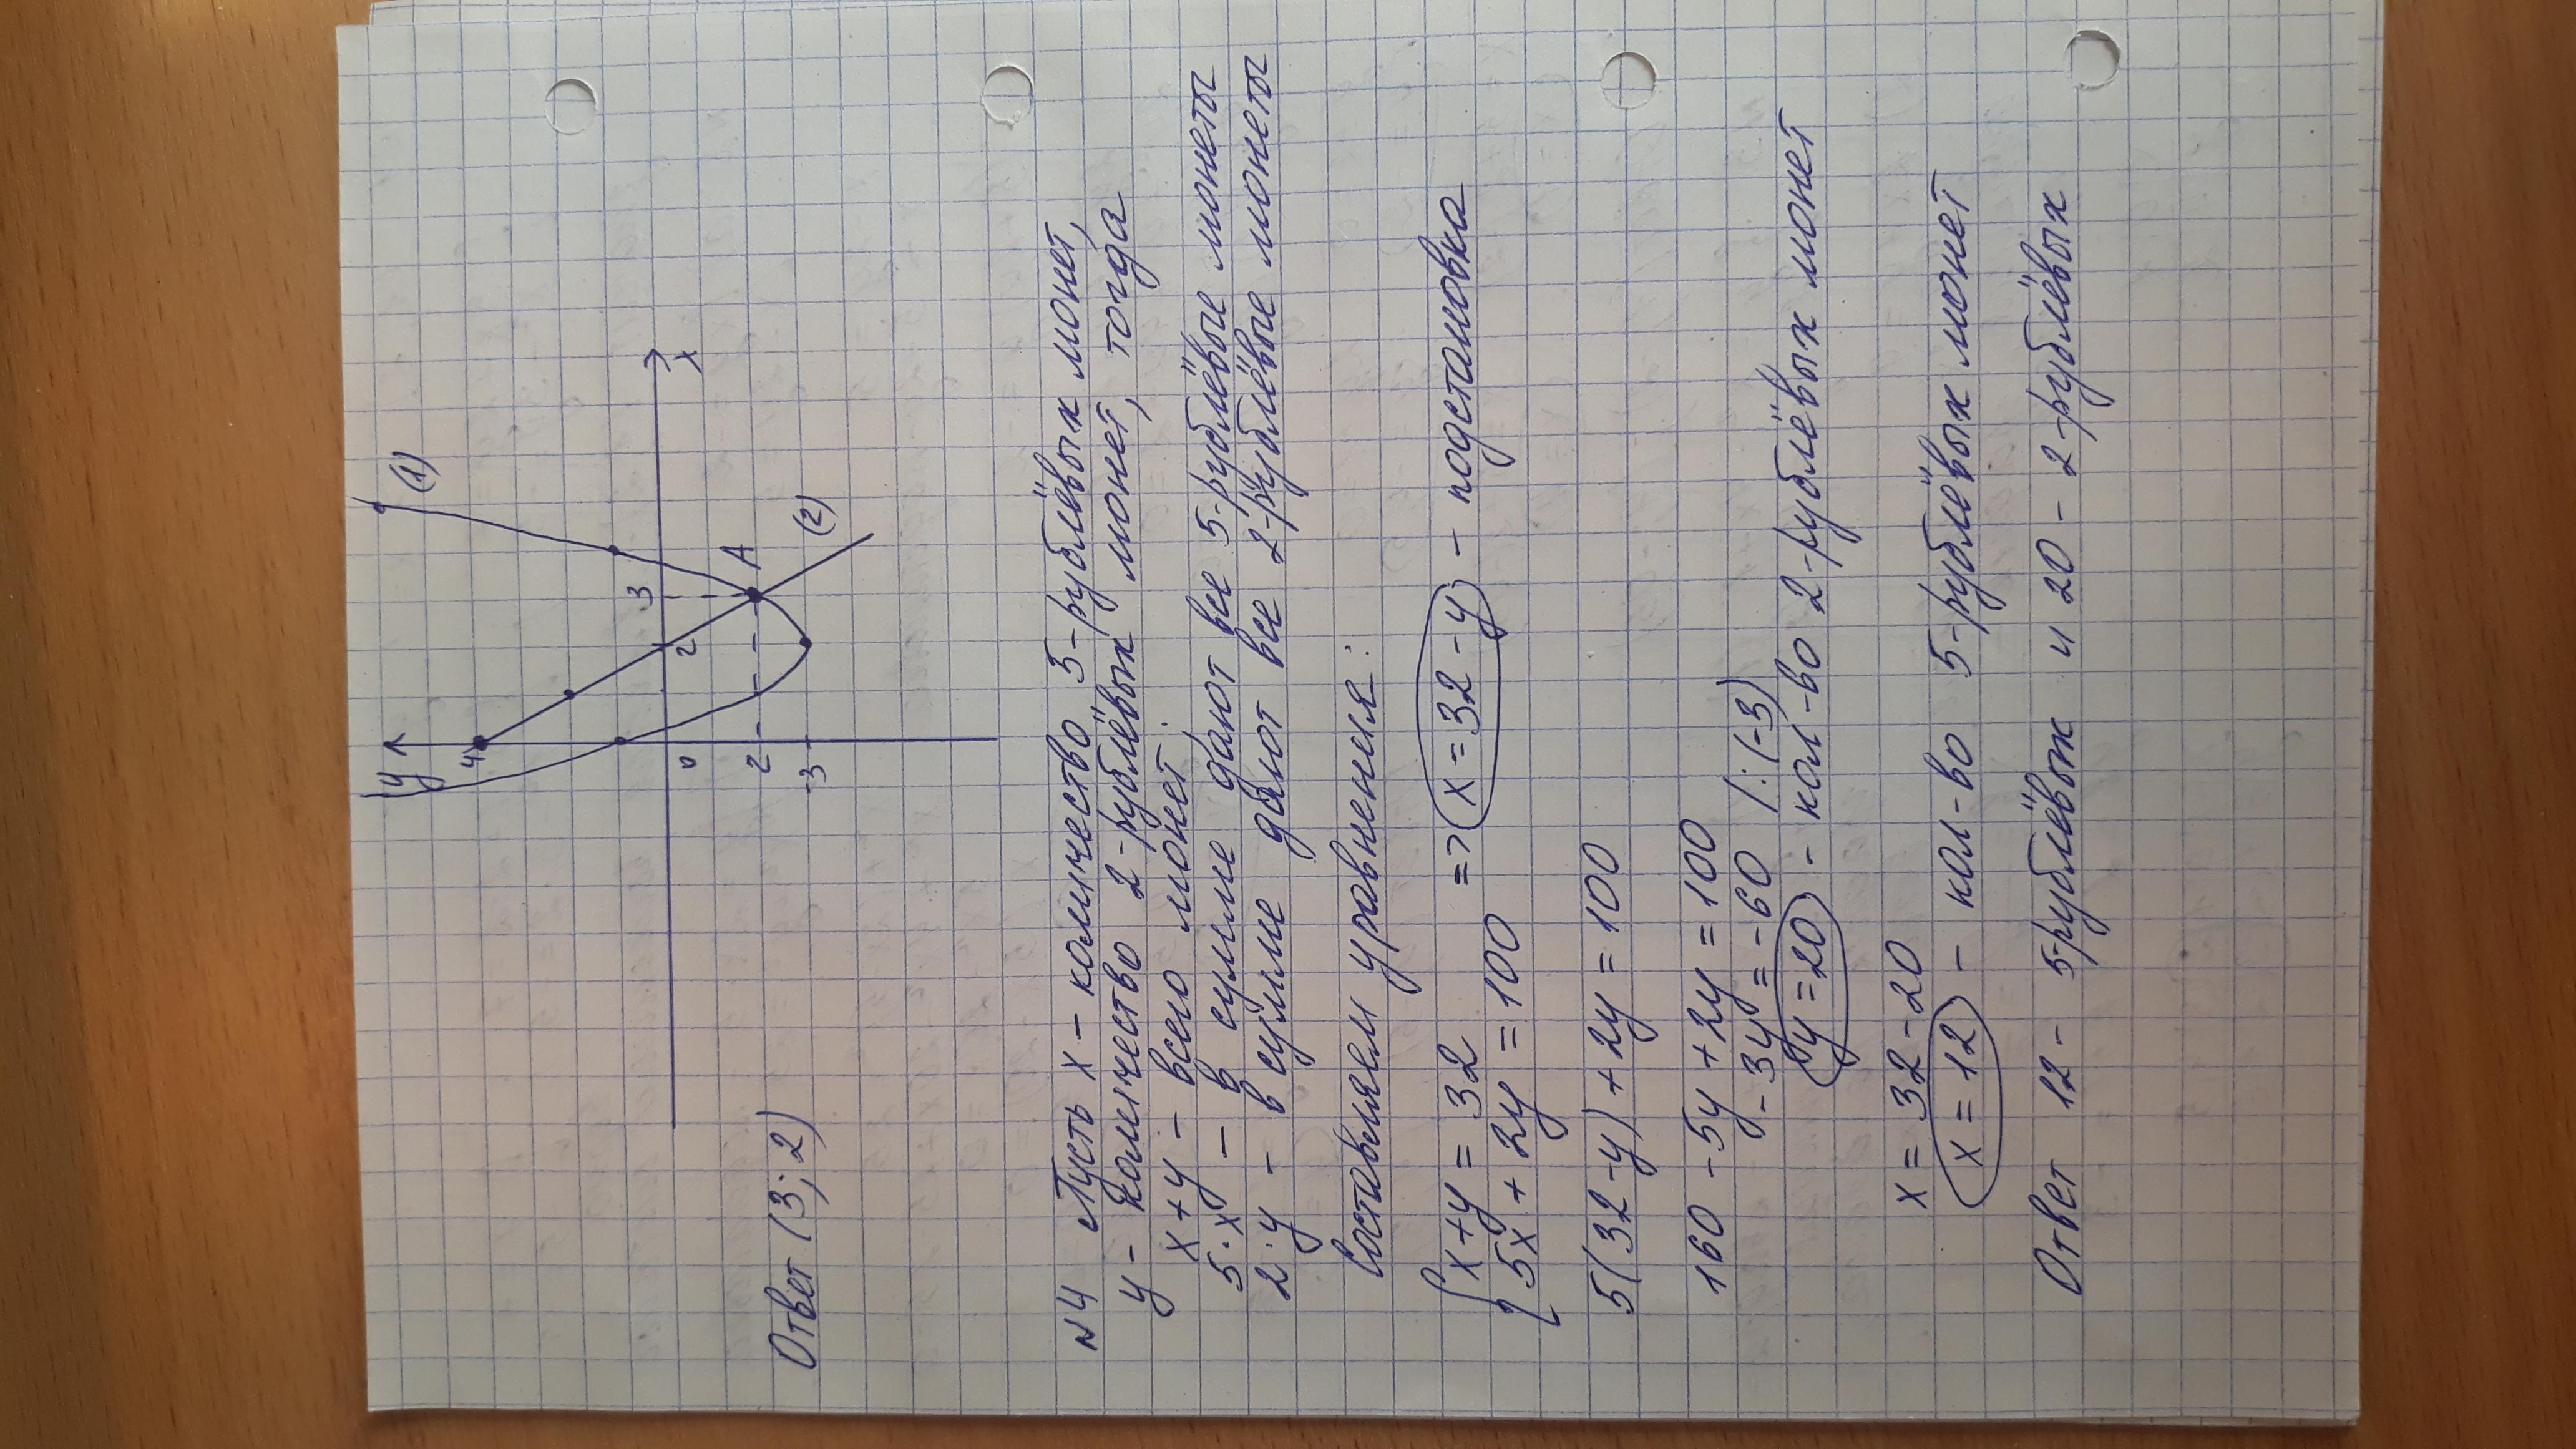 y
4
(1)
3
x
0
2
A
2
-3
(2)
Ответ (3; 2)
№4 Пусть x - количество 5-рублёвых монет,
y - количество 2-рублёвых монет, тогда
x + y - всего монет;
5·x - в сумме дают все 5-рублёвые монеты
2·y - в сумме дают все 2-рублёвые монеты
Составляем уравнения:
{ x + y = 32
5x + 2y = 100 => x = 32 - y - подстановка
5(32 - y) + 2y = 100
160 - 5y + 2y = 100
- 3y = - 60 /:(-3)
y = 20 - кол-во 2-рублёвых монет
x = 32 - 20
x = 12 - кол-во 5-рублёвых монет
Ответ 12 - 5-рублёвых и 20 - 2-рублёвых